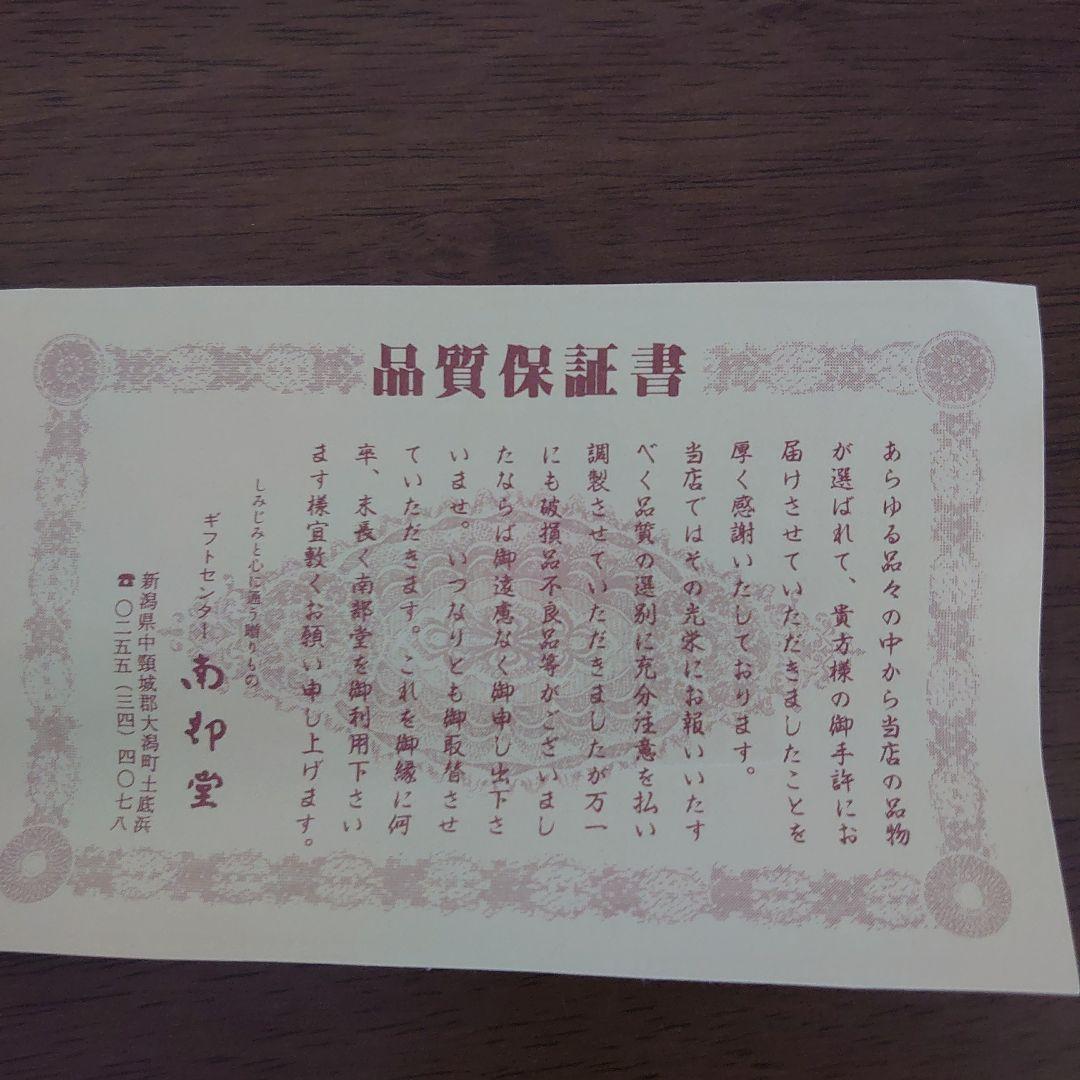 品質保証書
あらゆる品々の中から当店の品物
が選ばれて、貴方様の御手許にお
届けさせていただきましたことを
厚く感謝いたしております。
当店ではその光栄にお報いいたす
べく品質の選別に充分注意を払い
調製させていただきましたが万一
にも破損品不良品等がございまし
たならば御遠慮なく御申し出下さ
いませ。いつなりとも御取替させ
ていただきます。これを御縁に何
卒、末長く南部堂を御利用下さい
ます様宜敷くお願い申し上げます。
しみじみと心に通う贈りもの
ギフトセンター 南部堂
新潟県中頸城郡大潟町土底浜
☎〇二五五(三四)四〇七八